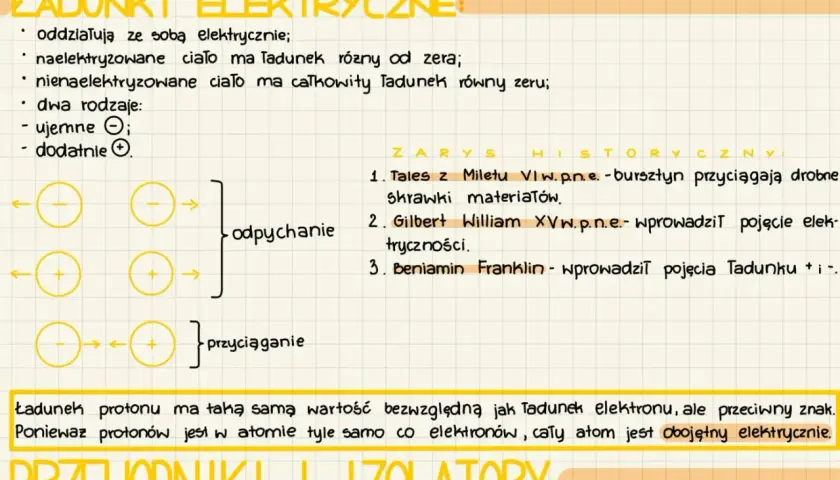 ŁADUNKI ELEKTRYCZNE:
· oddziałują ze sobą elektrycznie;
· naelektryzowane ciało ma ładunek różny od zera;
· nienaelektryzowane ciało ma całkowity ładunek równy zeru;
· dwa rodzaje:
- ujemne ⊖;
- dodatnie ⊕.
← - - →
odpychanie
← + + →
- → ← +
przyciąganie
ZARYS HISTORYCZNY:
1. Tales z Miletu VI w. p.n.e. - bursztyn przyciągają drobne
skrawki materiałów.
2. Gilbert William XV w. p.n.e. - wprowadził pojęcie elek-
tryczności.
3. Beniamin Franklin - wprowadził pojęcia ładunku + i -.
Ładunek protonu ma taką samą wartość bezwzględną jak ładunek elektronu, ale przeciwny znak.
Ponieważ protonów jest w atomie tyle samo co elektronów, cały atom jest obojętny elektrycznie.
PRZEWODNIKI I IZOLATORY